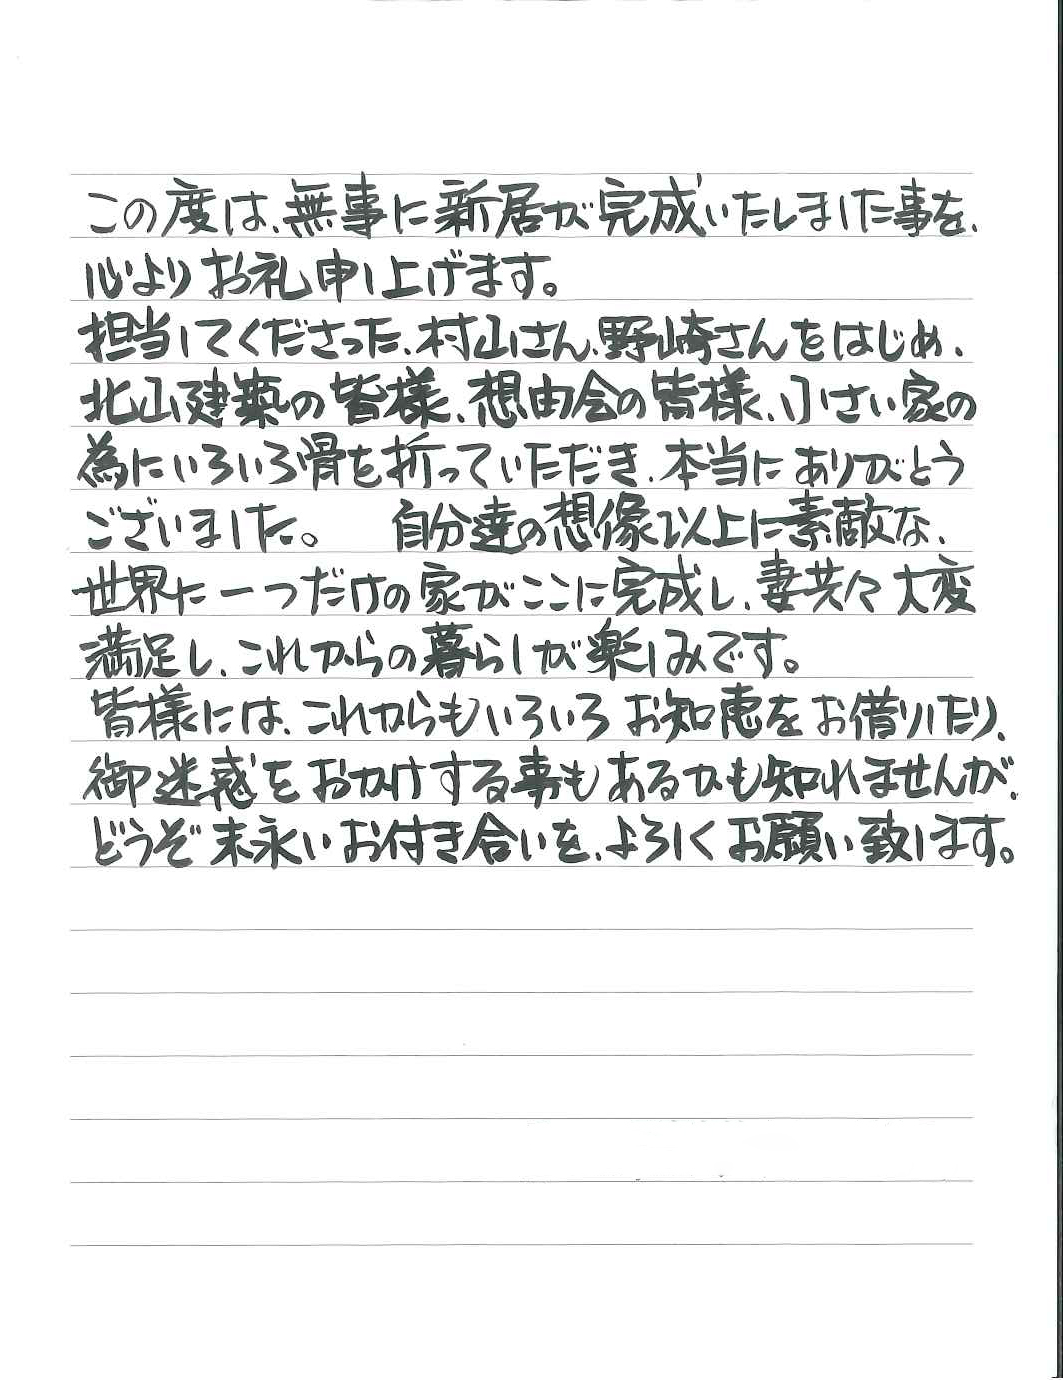 この度は、無事に新居が完成いたしました事を、
心よりお礼申し上げます。
担当してくださった、村山さん、野崎さんをはじめ、
北山建築の皆様、想由会の皆様、小さい家の
為にいろいろ骨を折っていただき、本当にありがとう
ございました。　自分達の想像以上に素敵な、
世界に一つだけの家がここに完成し、妻共々大変
満足し、これからの暮らしが楽しみです。
皆様には、これからもいろいろお知恵をお借りしたり、
御迷惑をおかけする事もあるかも知れませんが、
どうぞ末永いお付き合いを、よろしくお願い致します。